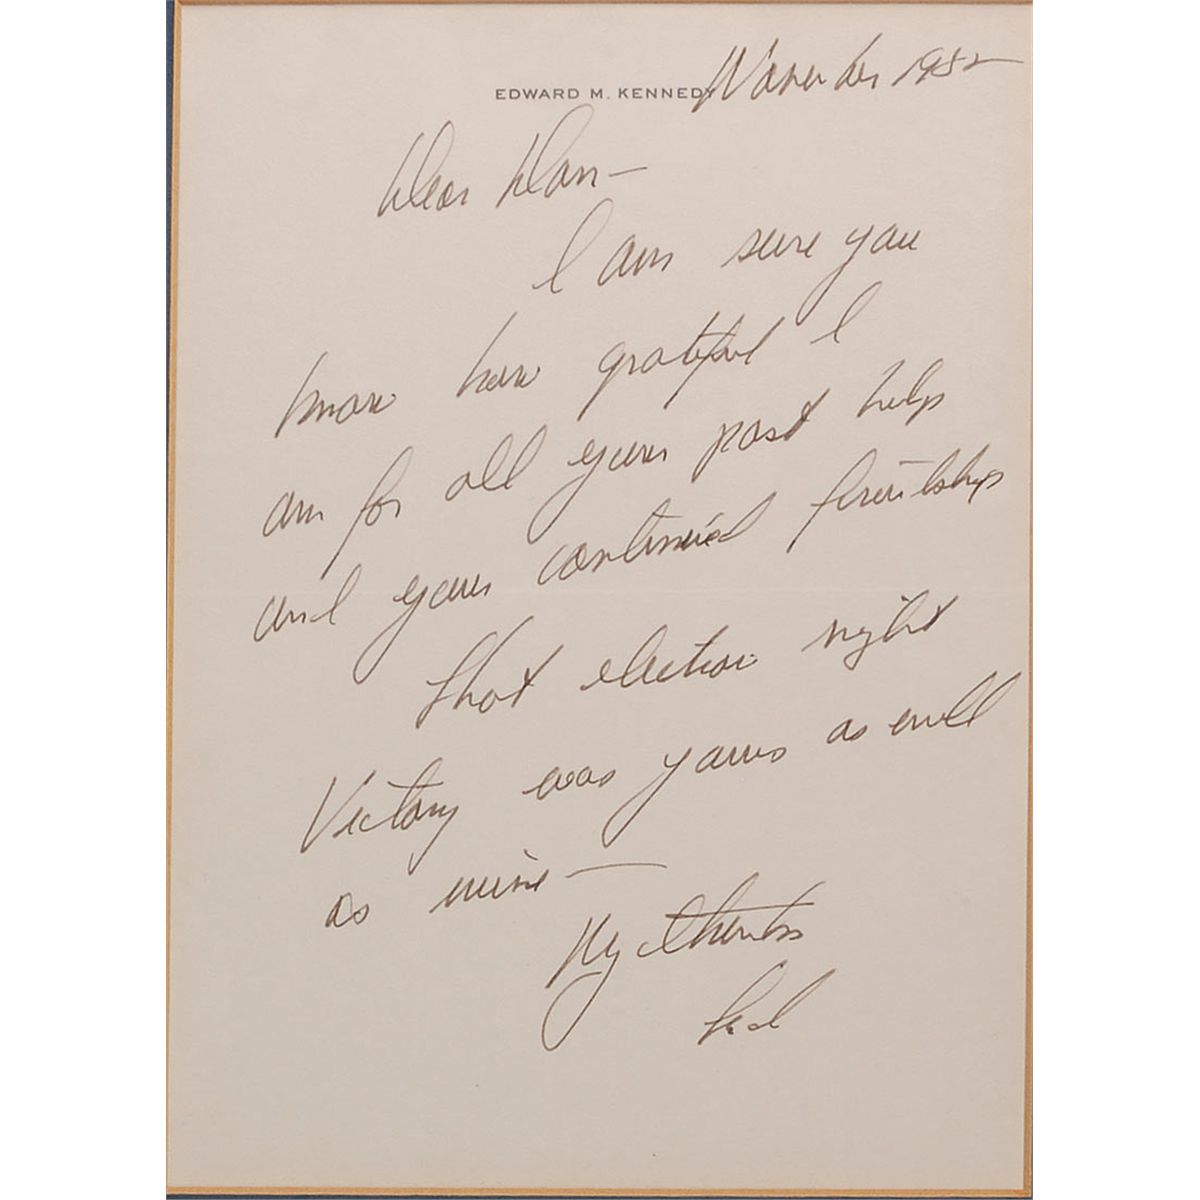 EDWARD M. KENNEDY November 1982
Dear Dan—
I am sure you
know how grateful I
am for all your past help
and your continued friendship
that election night
Victory was yours as well
as mine—
My thanks
Ted